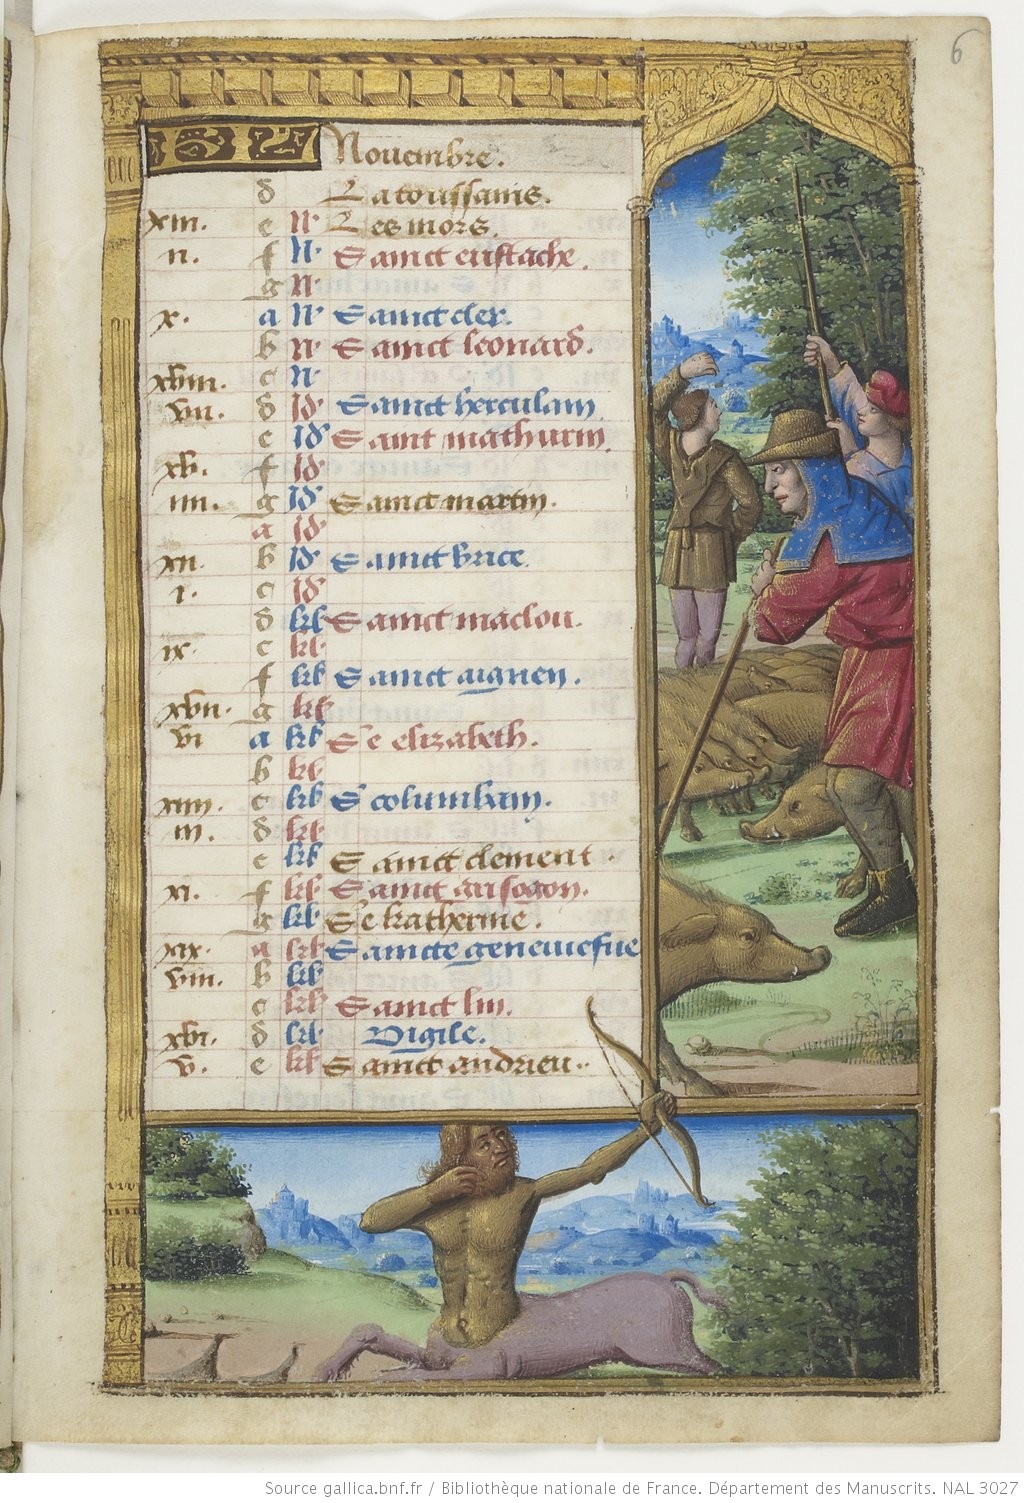 6
Nouembre.
d La toussains.
xiii. e N. Les mors.
ii. f N. Sainct eustache.
g N.
x. a N. Sainct cler.
b N. Sainct leonard.
xviii. c N.
vii. d Id. Sainct herculain
e Id Saint mathurin.
xv. f Id.
iiii. g Id. Sainct martin.
a Id
xii. b Id. Sainct brice.
i. c Id
d kl Sainct maclou.
ix. e kl.
f kl Sainct aignen.
xvii. g kl
vi a kl Se elizabeth.
b kl
xiiii. c kl S columbain.
iii. d kl.
e kl Sainct clement.
xi. f kl Sainct grisogon.
g kl Se katherine.
xix. a kl Saincte geneuiefue
viii. b kl
c kl Sainct lin.
xvi. d kl. Vigile.
v. e kl Sainct andrieu.
Source gallica.bnf.fr / Bibliothèque nationale de France. Département des Manuscrits. NAL 3027